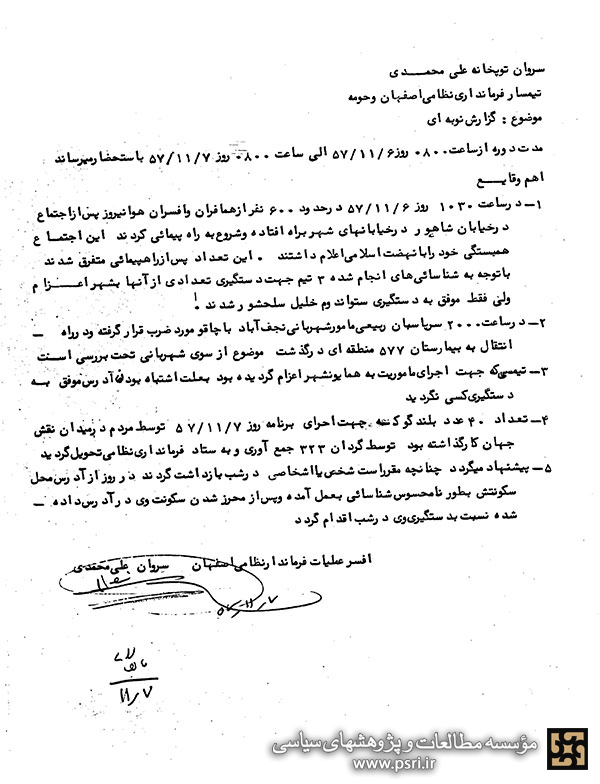 سروان توپخانه علی محمدی
تیمسار فرمانداری نظامی اصفهان وحومه
موضوع : گزارش نوبه ای
مدت دوره از ساعت ۰۸۰۰ روز ۵۷/۱۱/۶ الی ساعت ۰۸۰۰ روز ۵۷/۱۱/۷ باستحضار میرساند
اهم وقایع
۱- در ساعت ۱۰۳۰ روز ۵۷/۱۱/۶ در حدود ۶۰۰ نفر از همافران وافسران هوانیروز پس از اجتماع
در خیابان شاهپور در خیابانهای شهر براه افتاده وشروع به راه پیمائی کردند این اجتماع
همبستگی خود را با نهضت اسلامی اعلام داشتند . این تعداد پس از راهپیمائی متفرق شدند
با توجه به شناسائی های انجام شده ۳ تیم جهت دستگیری تعدادی از آنها بشهر اعزام
ولی فقط موفق به دستگیری ستواندوم خلیل سلحشور شدند !
۲- در ساعت ۲۰۰۰ سرپاسبان ربیعی مامور شهربانی نجف آباد با چاقو مورد ضرب قرار گرفته ودر راه
انتقال به بیمارستان ۵۷۷ منطقه ای در گذشت موضوع از سوی شهربانی تحت بررسی است
۳- تیمی که جهت اجرای ماموریت به همایونشهر اعزام گردیده بود بعلت اشتباه بودن آدرس موفق به
دستگیری کسی نگردید
۴- تعداد ۴۰ عدد بلندگو که جهت اجرای برنامه روز ۵۷/۱۱/۷ توسط مردم در میدان نقش
جهان کار گذاشته بود توسط گردان ۳۲۳ جمع آوری و به ستاد فرمانداری نظامی تحویل گردید
۵- پیشنهاد میگردد چنانچه مقرر است شخص یا اشخاصی در شب بازداشت گردند در روز از آدرس محل
سکونتش بطور نامحسوس شناسائی بعمل آمده وپس از محرز شدن سکونت وی در آدرس داده
شده نسبت بدستگیری وی در شب اقدام گردد
افسر عملیات فرماندار نظامی اصفهان سروان علی محمدی
۵۷/۱۱/۷
۱۱/۷
مؤسسه مطالعات و پژوهشهای سیاسی
www.psri.ir